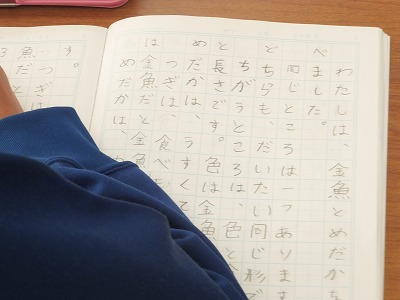 わたしは、金魚とめだかち
べました。
同じところは一つありまさ
どちらも、だいたい同じ形で
ちがうところは、色と
と長さです。色は金魚
めだかは、うすくて
つぎは、食べ
は金魚だと金魚
めだかは、
す。
つぎは
魚だと